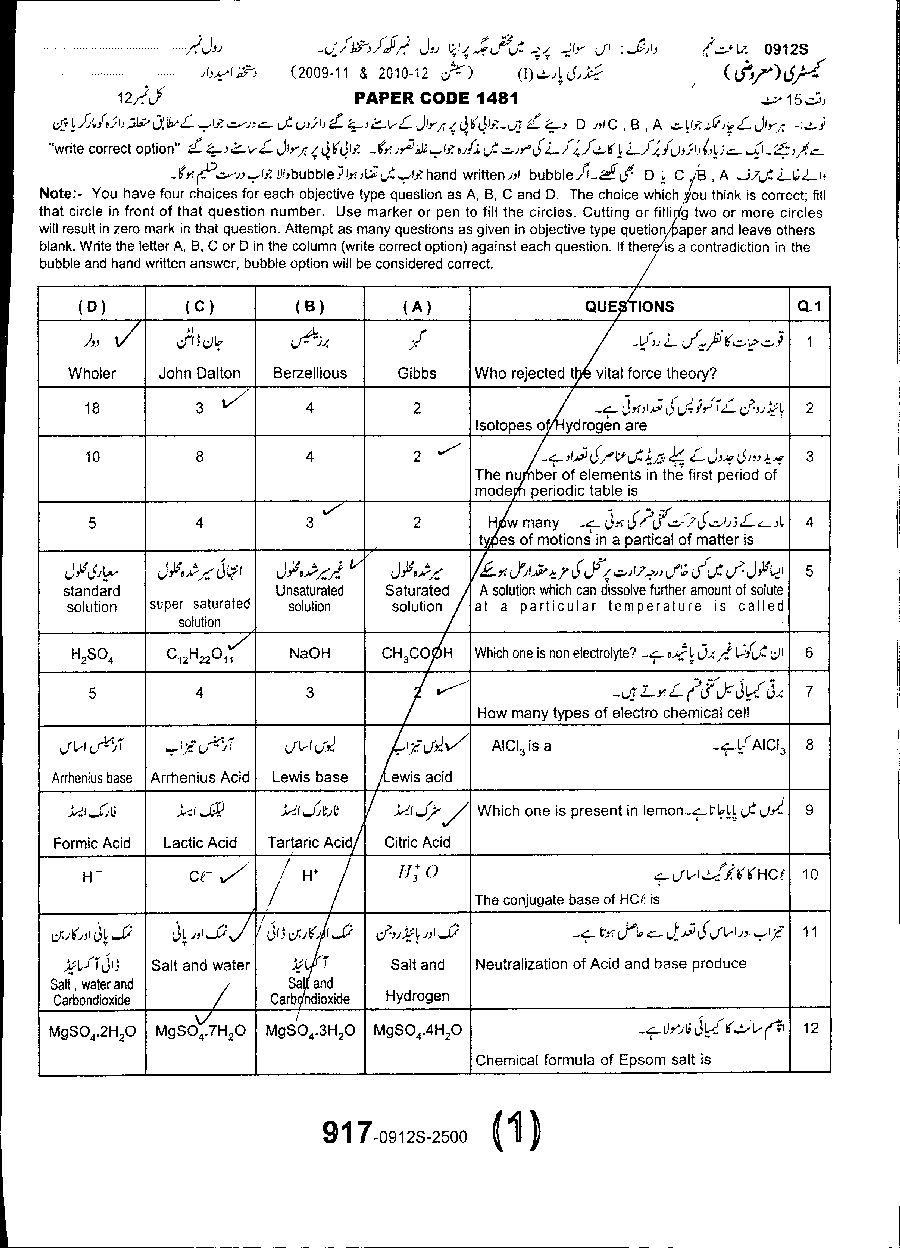 0912S جماعت نہم وارننگ: اس سوالیہ پرچہ میں مختص جگہ پر اپنا رول نمبر لکھ کر دستخط کریں۔ رول نمبر
کیمسٹری (معروضی) سیکنڈری پارٹ (I) (سیشن 2009-11 & 2010-12) دستخط امیدوار
وقت 15 منٹ PAPER CODE 1481 کل نمبر 12
نوٹ:- ہر سوال کے چار ممکنہ جوابات A ، B ، C اور D دیے گئے ہیں۔ جوابی کاپی پر ہر سوال کے سامنے دیے گئے دائروں میں سے درست جواب کے مطابق متعلقہ دائرہ کو مارکر یا پین
سے بھر دیجئے۔ ایک سے زیادہ دائروں کو پُر کرنے یا کاٹ کر پُر کرنے کی صورت میں مذکورہ جواب غلط تصور ہوگا۔ جوابی کاپی پر ہر سوال کے سامنے دیے گئے "write correct option"
والے خانے میں حرف A ، B ، C یا D بھی لکھیے۔ اگر bubble اور hand written جواب میں تضاد ہوا تو bubble والا جواب درست تسلیم ہوگا۔
Note:- You have four choices for each objective type question as A, B, C and D. The choice which you think is correct; fill
that circle in front of that question number. Use marker or pen to fill the circles. Cutting or filling two or more circles
will result in zero mark in that question. Attempt as many questions as given in objective type quetion paper and leave others
blank. Write the letter A, B, C or D in the column (write correct option) against each question. If there is a contradiction in the
bubble and hand written answer, bubble option will be considered correct.
(D) (C) (B) (A) QUESTIONS Q.1
وولر جان ڈالٹن برزیلیس گبز قوت حیات کا نظریہ کس نے رد کیا۔ 1
Wholer John Dalton Berzellious Gibbs Who rejected the vital force theory?
18 3 4 2 ہائیڈروجن کے آئسوٹوپس کی تعداد ہوتی ہے۔ 2
Isotopes of Hydrogen are
10 8 4 2 جدید دوری جدول کے پہلے پیریڈ میں عناصر کی تعداد ہے۔ 3
The number of elements in the first period of
modern periodic table is
5 4 3 2 How many مادے کے ذرات کی حرکت کتنی قسم کی ہوتی ہے۔ 4
types of motions in a partical of matter is
معیاری محلول انتہائی سیر شدہ محلول غیر سیر شدہ محلول سیر شدہ محلول ایسا محلول جس میں کسی خاص درجہ حرارت پر منحل کی مزید مقدار حل ہو سکے 5
standard solution super saturated solution Unsaturated solution Saturated solution A solution which can dissolve further amount of solute
at a particular temperature is called
H₂SO₄ C₁₂H₂₂O₁₁ NaOH CH₃COOH Which one is non electrolyte? ان میں کونسا غیر برق پاشیدہ ہے۔ 6
5 4 3 2 برقی کیمیائی سیل کتنی قسم کے ہوتے ہیں۔ 7
How many types of electro chemical cell
آرہینیس اساس آرہینیس تیزاب لیوس اساس لیوس تیزاب AlCl₃ is a AlCl₃ کیا ہے۔ 8
Arrhenius base Arrhenius Acid Lewis base Lewis acid
فارمک ایسڈ لیکٹک ایسڈ ٹارٹارک ایسڈ سٹرک ایسڈ Which one is present in lemon لیموں میں پایا جاتا ہے۔ 9
Formic Acid Lactic Acid Tartaric Acid Citric Acid
H⁻ Cℓ⁻ H⁺ H₃⁺O HCℓ کا کانجوگیٹ اساس ہے 10
The conjugate base of HCℓ is
نمک پانی اور کاربن ڈائی آکسائیڈ نمک اور پانی نمک اور کاربن ڈائی آکسائیڈ نمک اور ہائیڈروجن تیزاب اور اساس کی تعدیل سے حاصل ہوتا ہے۔ 11
Salt , water and Carbondioxide Salt and water Salt and Carbondioxide Salt and Hydrogen Neutralization of Acid and base produce
MgSO₄.2H₂O MgSO₄.7H₂O MgSO₄.3H₂O MgSO₄.4H₂O ایپسم سالٹ کا کیمیائی فارمولا ہے۔ 12
Chemical formula of Epsom salt is
917-0912S-2500 (1)